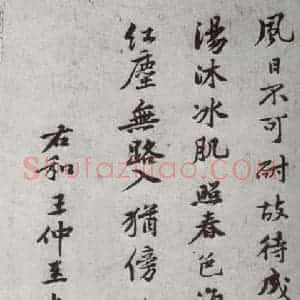 風日不可耐故待
湯沐冰肌照春色
紅塵無路入猶傍
右和王仲至
Shufaziliao.com